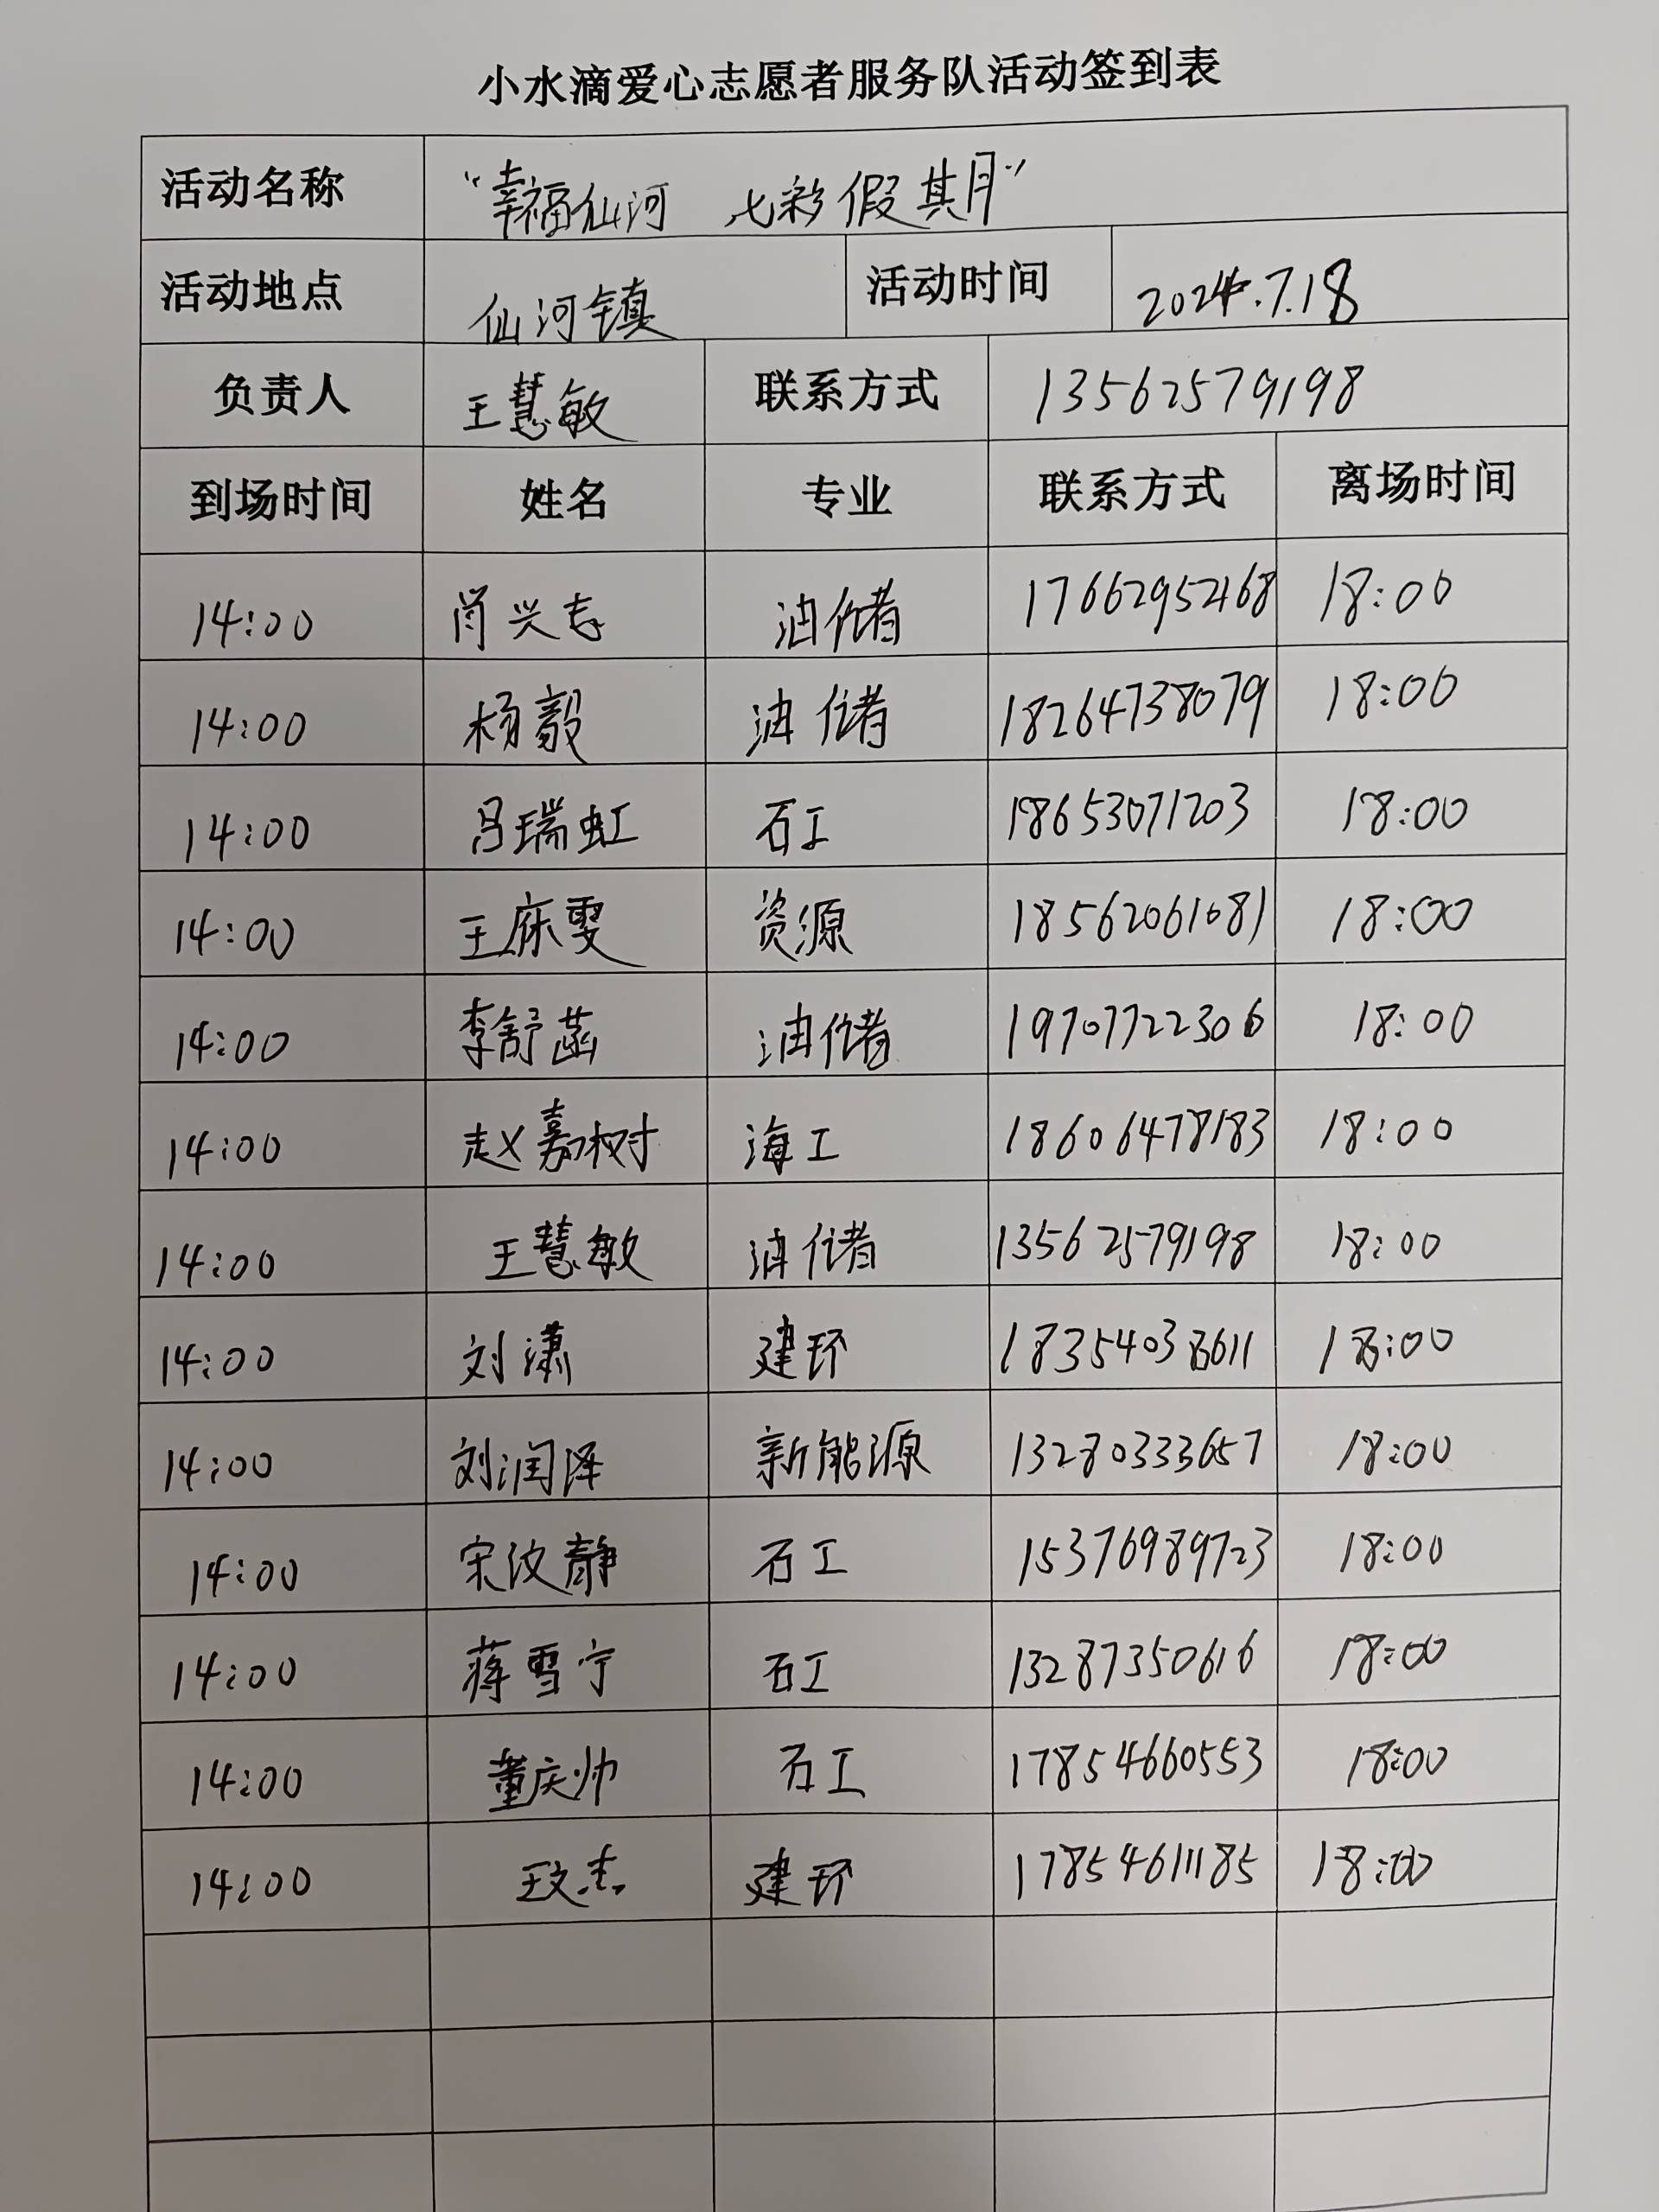 小水滴爱心志愿者服务队活动签到表
活动名称 “幸福仙河 七彩假期”
活动地点 仙河镇 活动时间 2024.7.18
负责人 王慧敏 联系方式 13562579198
到场时间 姓名 专业 联系方式 离场时间
14:00 肖兴志 油储 17662952168 18:00
14:00 杨毅 油储 18264738079 18:00
14:00 吕瑞虹 石工 18653071203 18:00
14:00 王庥雯 资源 18562061081 18:00
14:00 李舒菡 油储 19707722306 18:00
14:00 赵嘉树 海工 18606478183 18:00
14:00 王慧敏 油储 13562579198 18:00
14:00 刘潇 建环 18354038611 18:00
14:00 刘润泽 新能源 13280333657 18:00
14:00 宋汶静 石工 15376989723 18:00
14:00 蒋雪宁 石工 13287350616 18:00
14:00 董庆帅 石工 17854660553 18:00
14:00 王文志 建环 17854611185 18:00